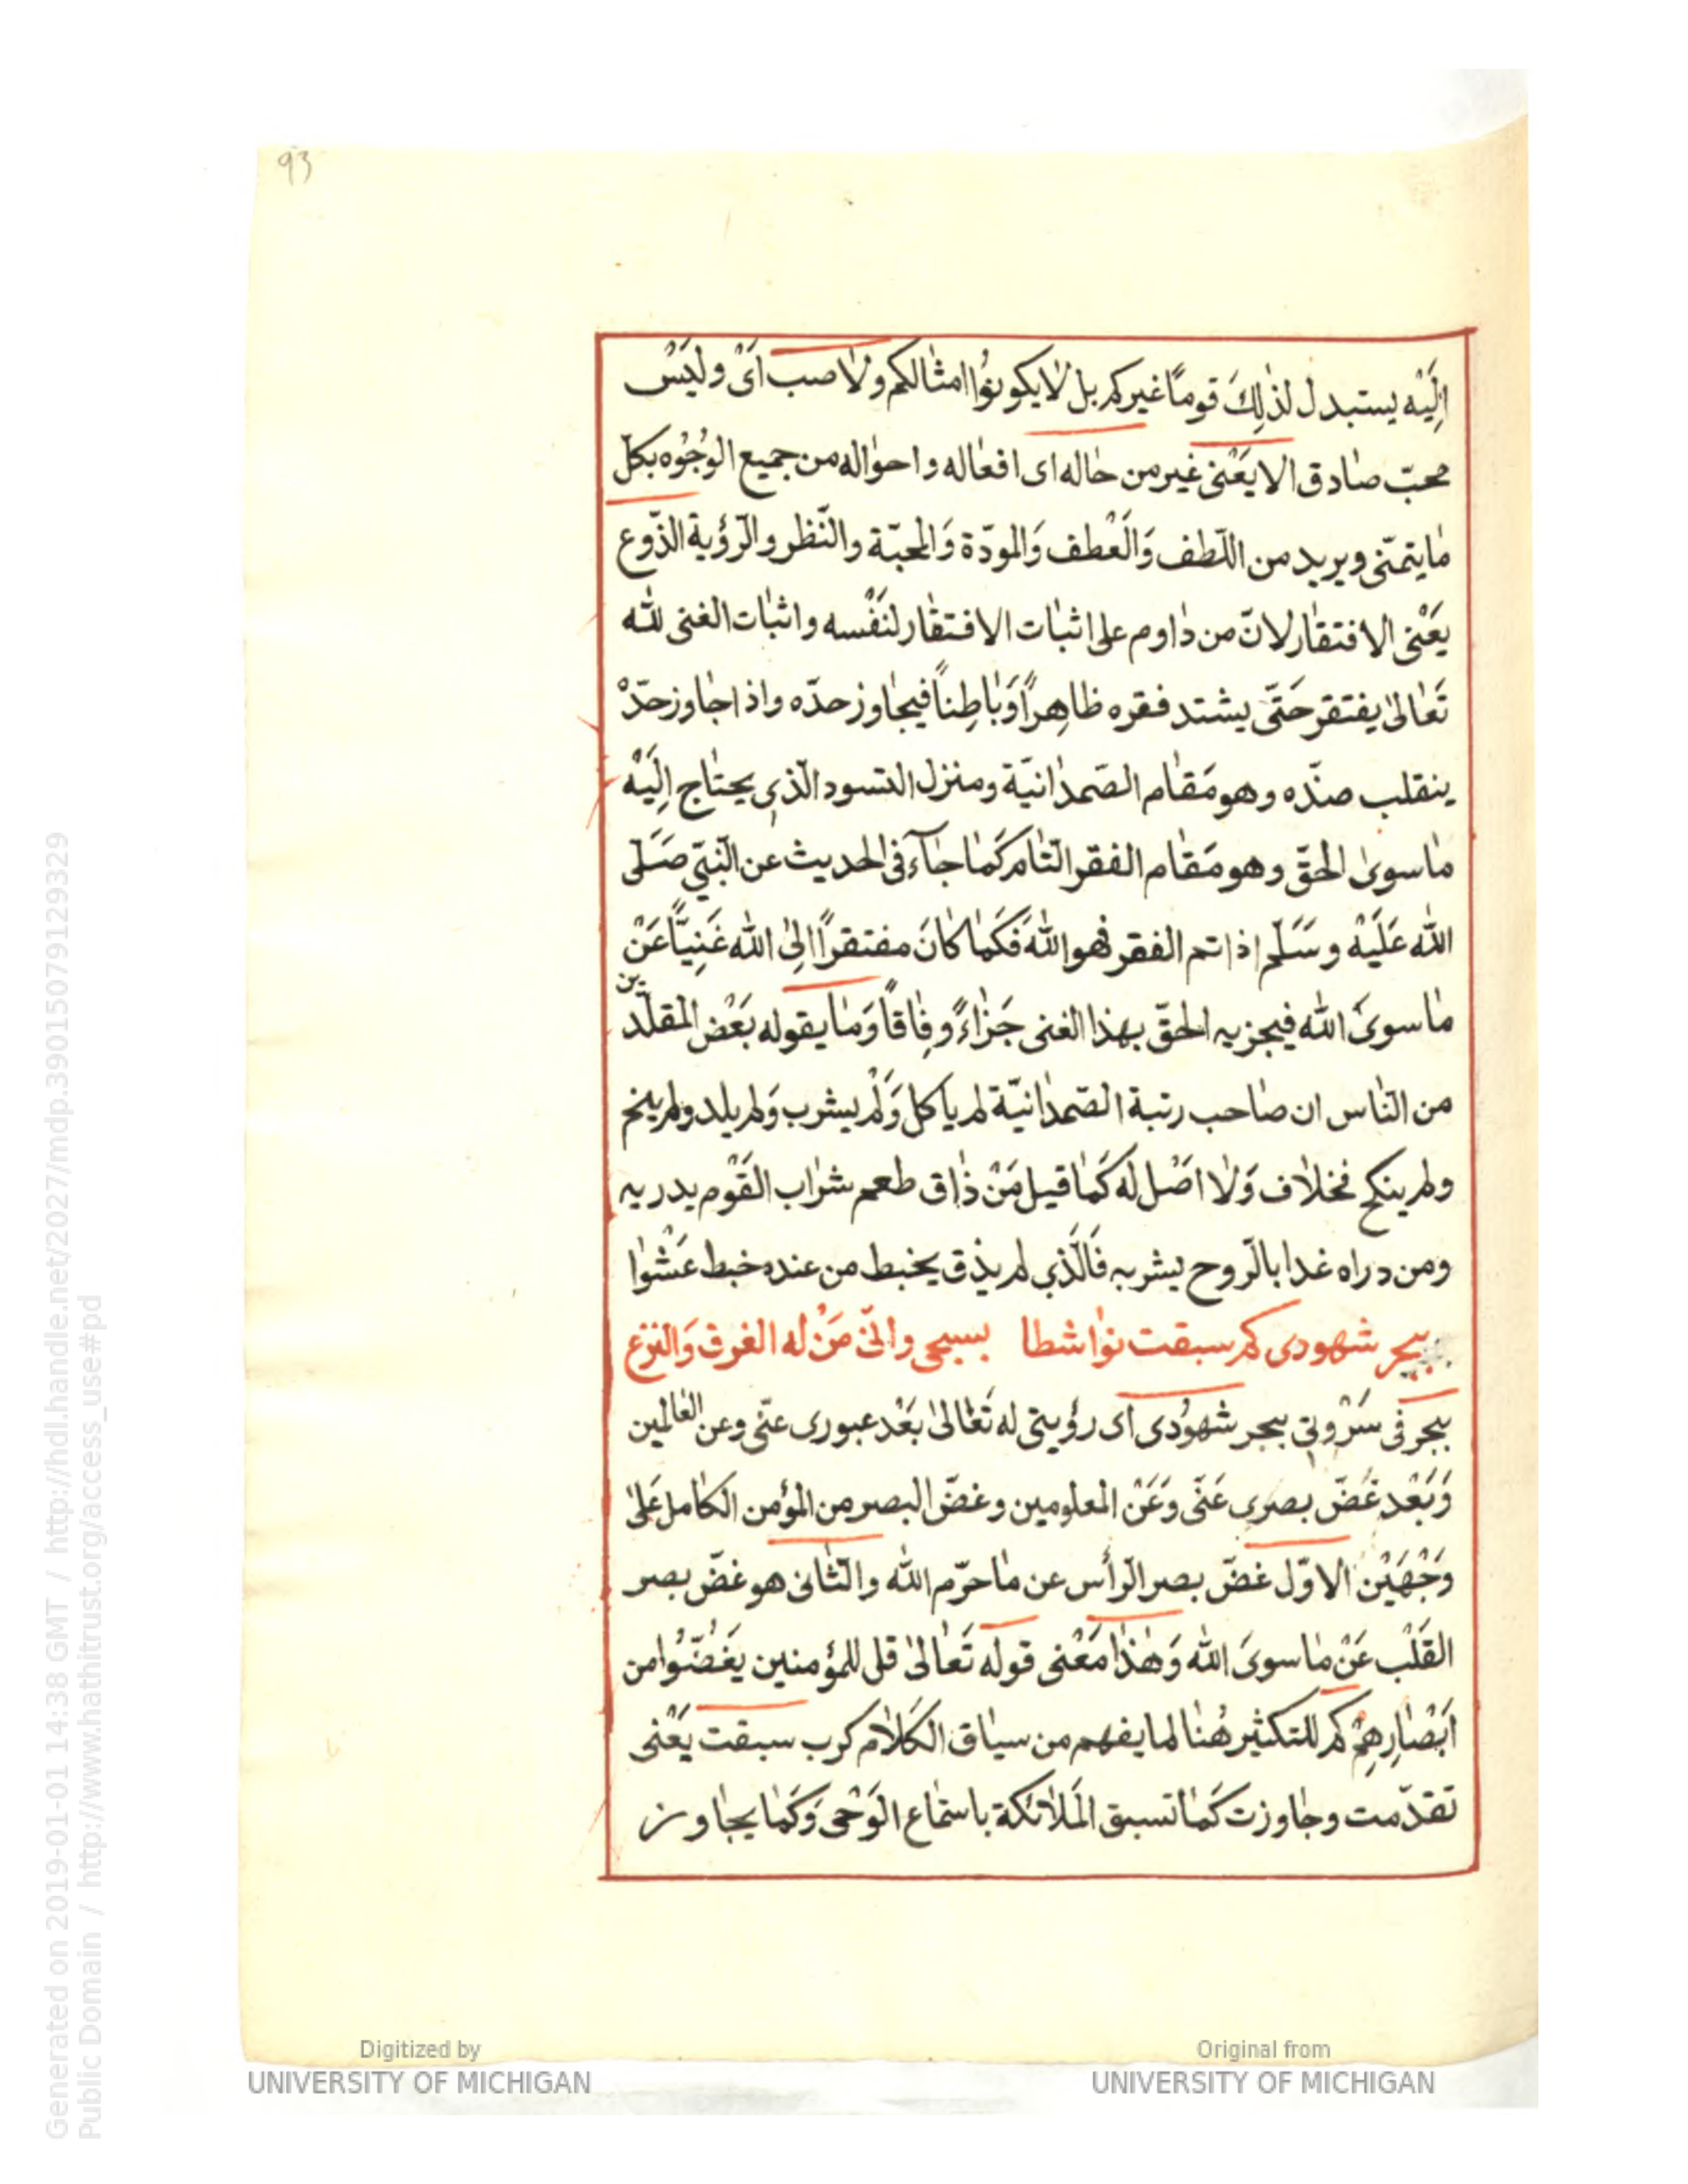 93
اِلَيْه يستبدل لذٰلِكَ قومًا غيركم بل لايكونوُا امثالكم ولا صب اَىْ وليَسْ
محبّ صادق الا يَعْنى غير من حاله اى افعاله واحواله من جميع الوُجُوُه بكل
ما يتمنّى ويريد من اللّطف وَالَعْطف وَالمودّة وَالمحبّة والنّظر والرّؤية الذّوع
يَعْنى الافتقار لانّ من داوم على اثبات الافتقار لنَفْسه واثبات الغنى للّٰه
تَعٰالىٰ يفتقر حَتّى يشتد فقره ظاهِراً وَبٰاطِناً فيجاوز حدّه واذا جاوز حدّهْ
ينقلب ضدّه وهو مَقٰام الصّمدٰانيّة ومنزل التسود الّذى يحتاج اِلَيْه
مٰا سوىٰ الحقّ وهو مَقٰام الفقر التّام كَمٰا جٰآء فى الحديث عن النّبىّ صَلّى
اللّٰه عَلَيْه وسَلّم اذا تم الفقر فهو اللّٰه فَكَمٰا كانَ مفتقراً اِلىٰ اللّٰه غَنِيّاً عَنْ
مٰا سوىَ اللّٰه فيجزيه الحقّ بهذا الغنى جَزٰاءً وِفٰاقاً وَمٰا يقوله بَعْض المقلّدين
من النّاس ان صٰاحب رتبة الصّمدٰانيّة لم ياكل وَلَمْ يشرب وَلم يلد ولم ينم
ولم ينكح فخلاف وَلا اصْل له كَمٰا قيل مَنْ ذٰاق طعم شرٰاب القَوْم يدريه
ومن دراه غدا بالرّوح يشربه فَالَّذي لم يذق يخبط من عنده خبط عَشْوٰا
ببحر شهودى كم سبقت نوٰاشطا بسبحى وانّى مَنْ له الغرق وَالنزع
ببحر فى سَرْوتى ببحر شهوُدى اَى رؤيتى له تَعٰالىٰ بَعْد عبورى عنّى وعن العٰالمين
وَبَعْد غَضّ بصرى عَنّى وَعَنْ المعلومين وغضّ البصر من المؤمن الكامل عَلىٰ
وَجْهَيْن الاوّل غضّ بصر الرّأس عن مٰا حرّم اللّٰه والثّانى هو غضّ بصر
القَلْب عَنْ مٰا سوىَ اللّٰه وَهٰذٰا مَعْنى قوله تَعٰالىٰ قل للمؤمنين يَغُضّوُا من
اَبْصٰارِهِمْ كم للتكثير هُنٰا لما يفهم من سيٰاق الكلام كرب سبقت يَعْنى
تقدّمت وجٰاوزت كَمٰا تسبق المَلائكة باستماع الوَحْى وَكَمٰا يجٰاوز
Generated on 2019-01-01 14:38 GMT / http://hdl.handle.net/2027/mdp.39015079129329
Public Domain / http://www.hathitrust.org/access_use#pd
Digitized by
UNIVERSITY OF MICHIGAN
Original from
UNIVERSITY OF MICHIGAN